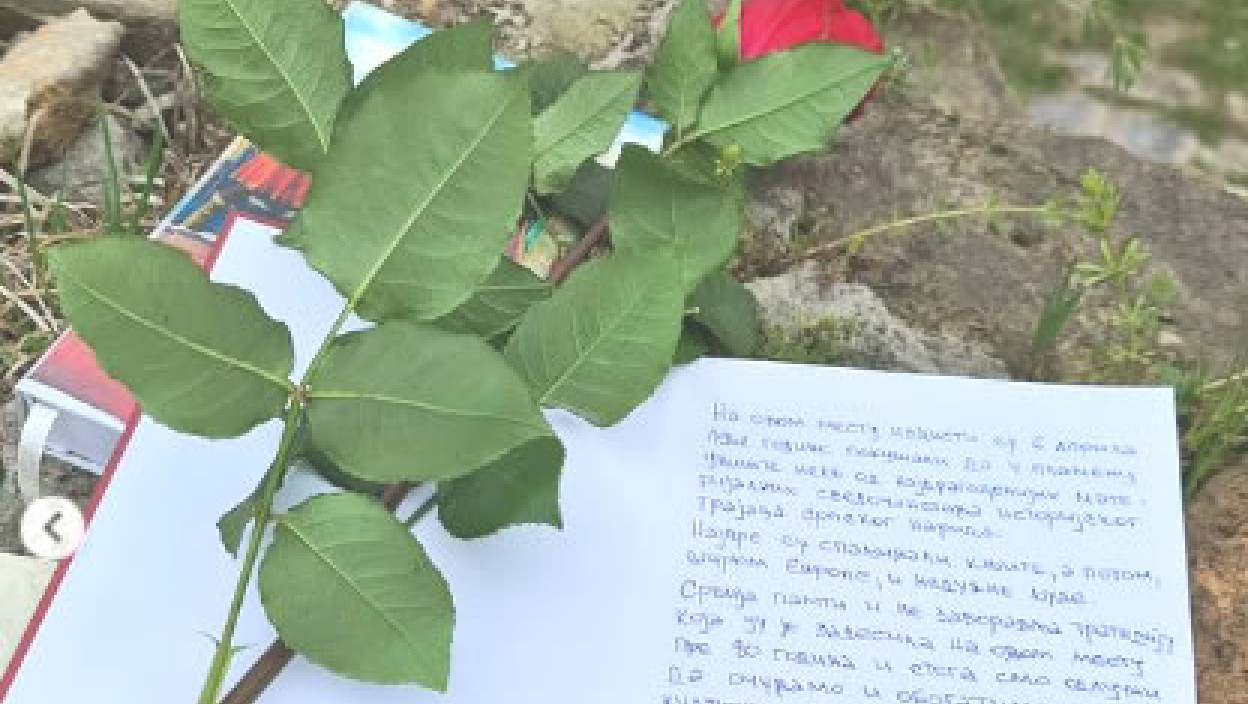 На овом месту нацисти су 6. априла
1941. године покушали да у пламену
униште неке од најдрагоценијих мате-
ријалних сведочанстава историјског
трајања српског народа.
Најпре су спаљивали књиге, а потом,
широм Европе, и недужне људе.
Србија памти и не заборавља трагедију
која су је задесила на овом месту
пре 80 година и стога смо одлучни
да очувамо и